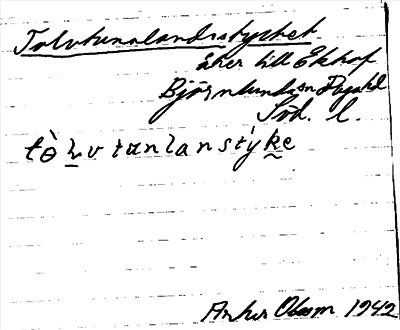 Tolvtunnlandsstycket
åker till Ekhof
Björnlunda sn Daga hd
Söd. l.
tòlv tunlanstýke
1942